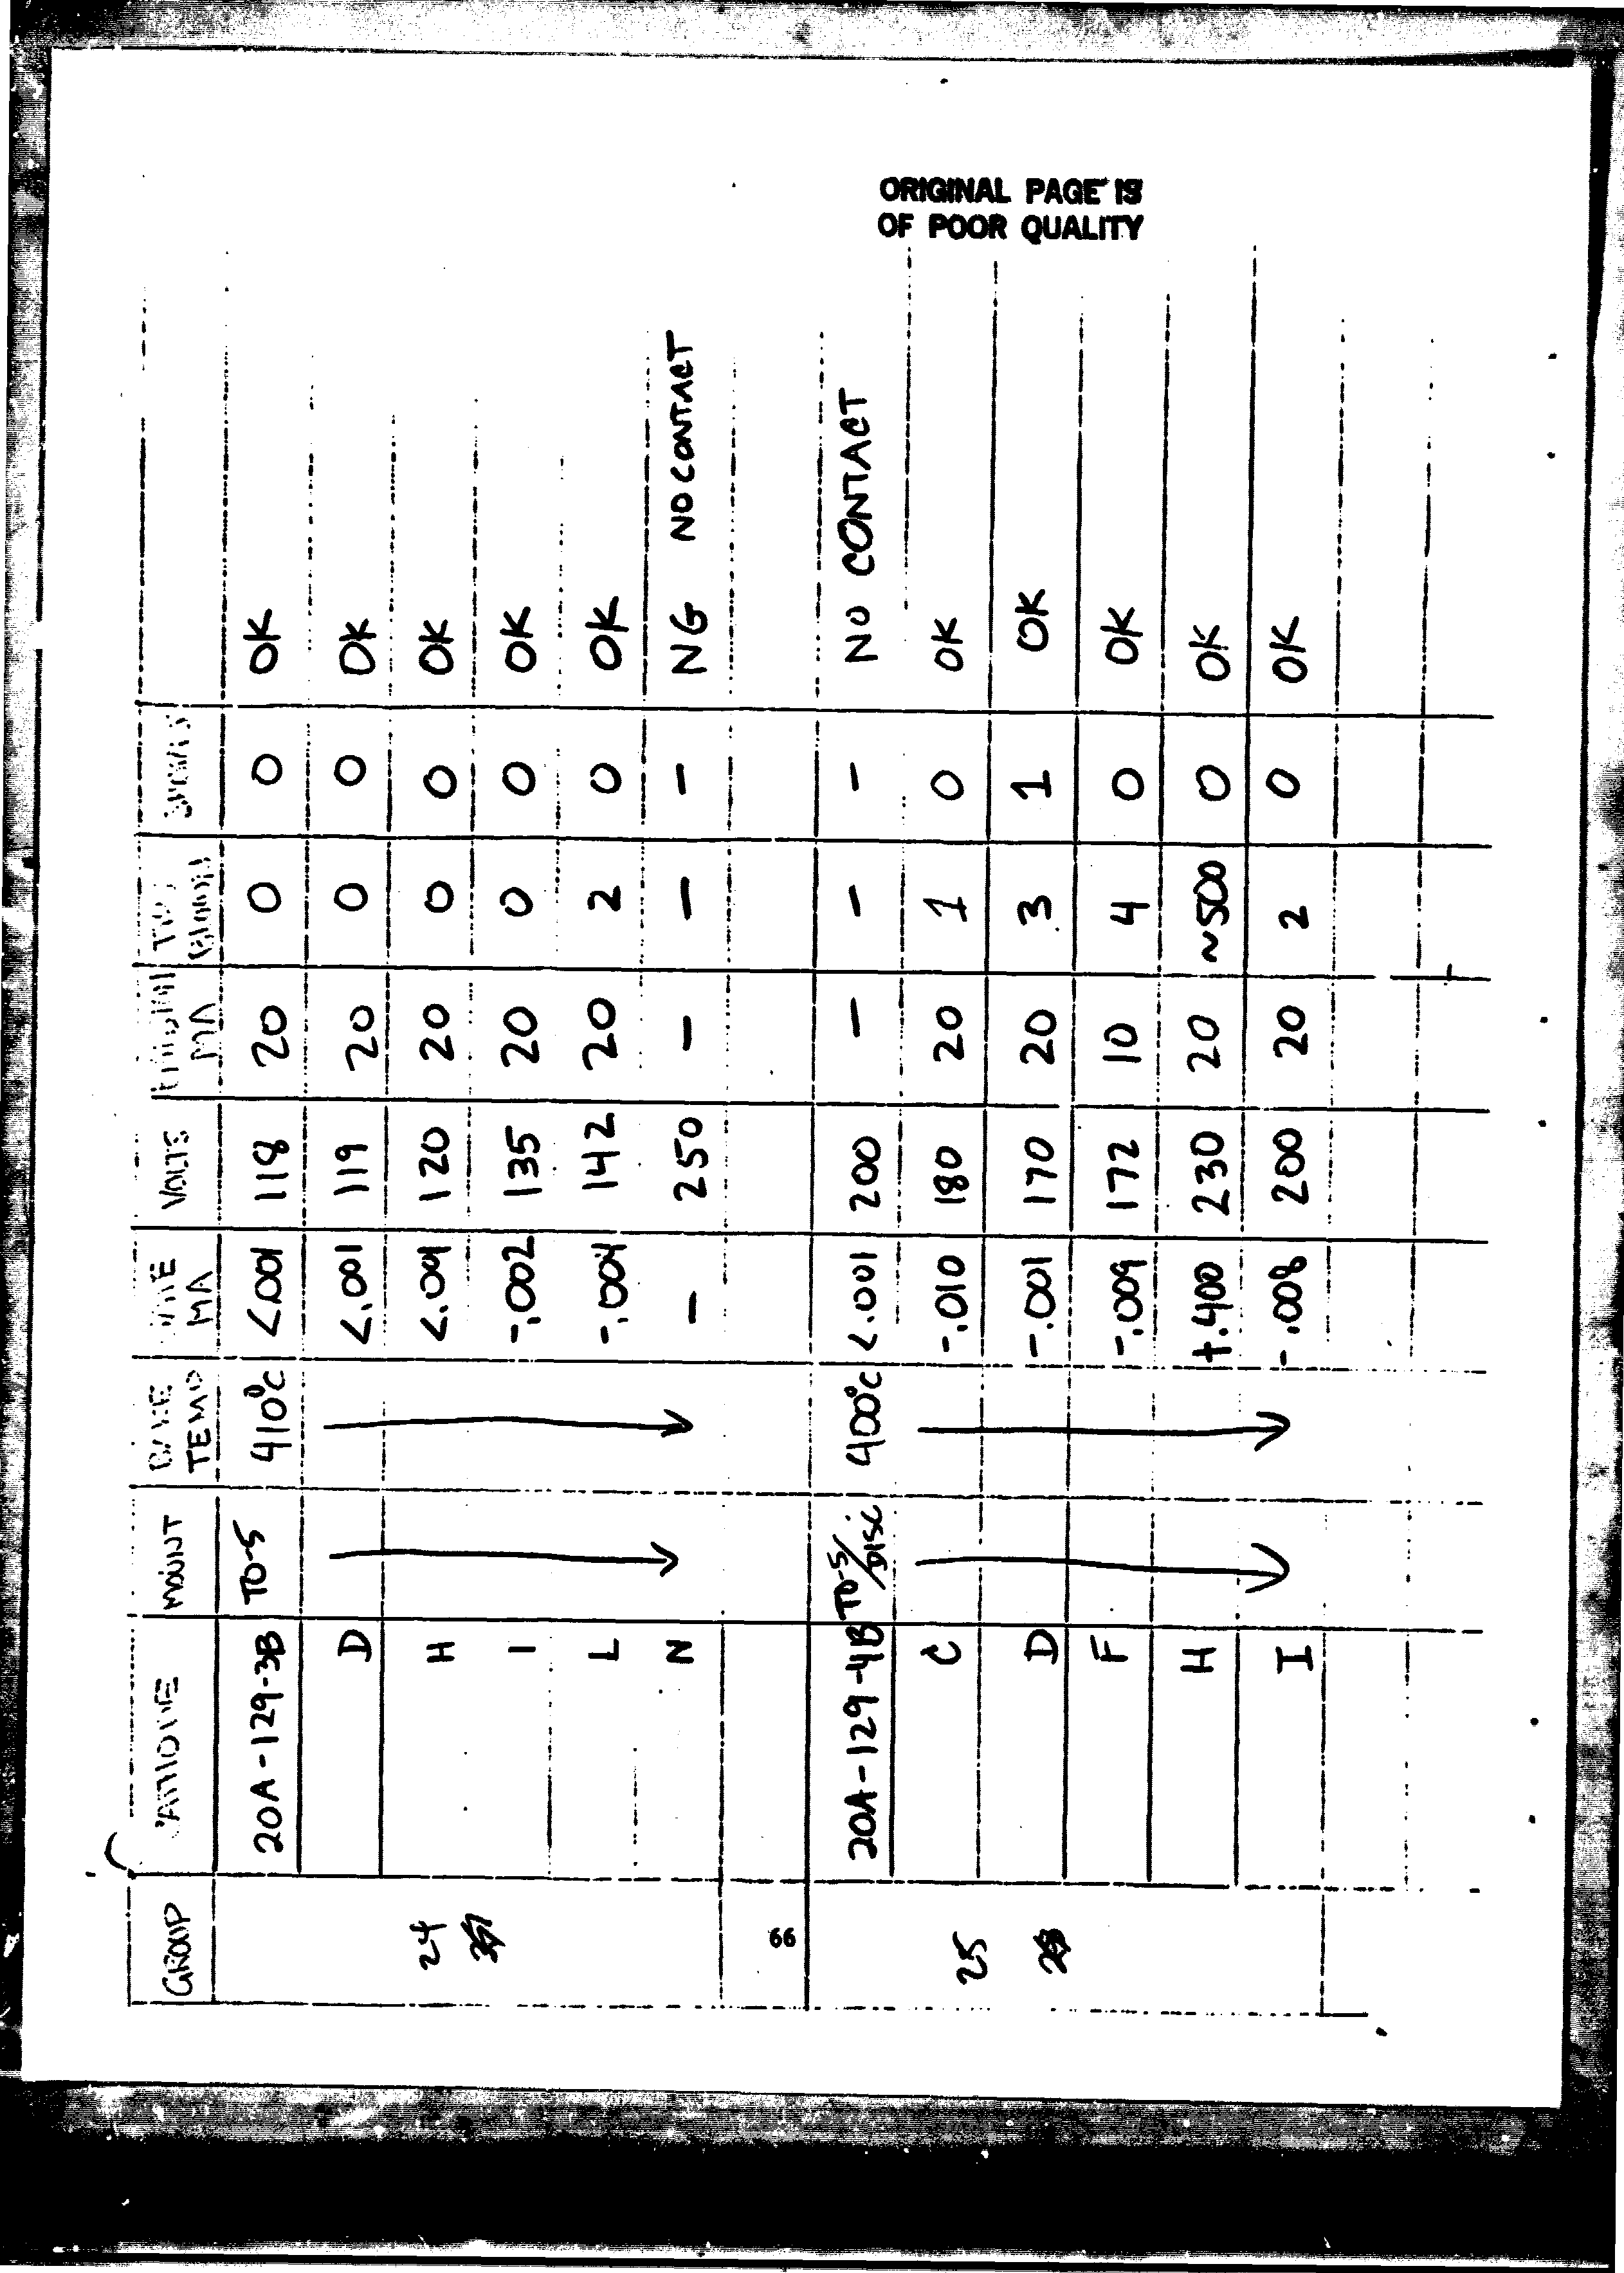 ORIGINAL PAGE IS
OF POOR QUALITY
GROUP MOUNT TEMP MA VOLTS MA
24 20A-129-3B TO-5 410°C <.001 118 20 0 0 OK
D <.001 119 20 0 0 OK
H <.001 120 20 0 0 OK
I -.002 135 20 0 0 OK
L -.004 142 20 2 0 OK
N - 250 - - - NG NO CONTACT
66
25 20A-129-4B TO-5/DISC 400°C <.001 200 - - - NO CONTACT
C -.010 180 20 1 0 OK
D -.001 170 20 3 1 OK
F -.009 172 10 4 0 OK
H +.400 230 20 ~500 0 OK
I -.008 200 20 2 0 OK